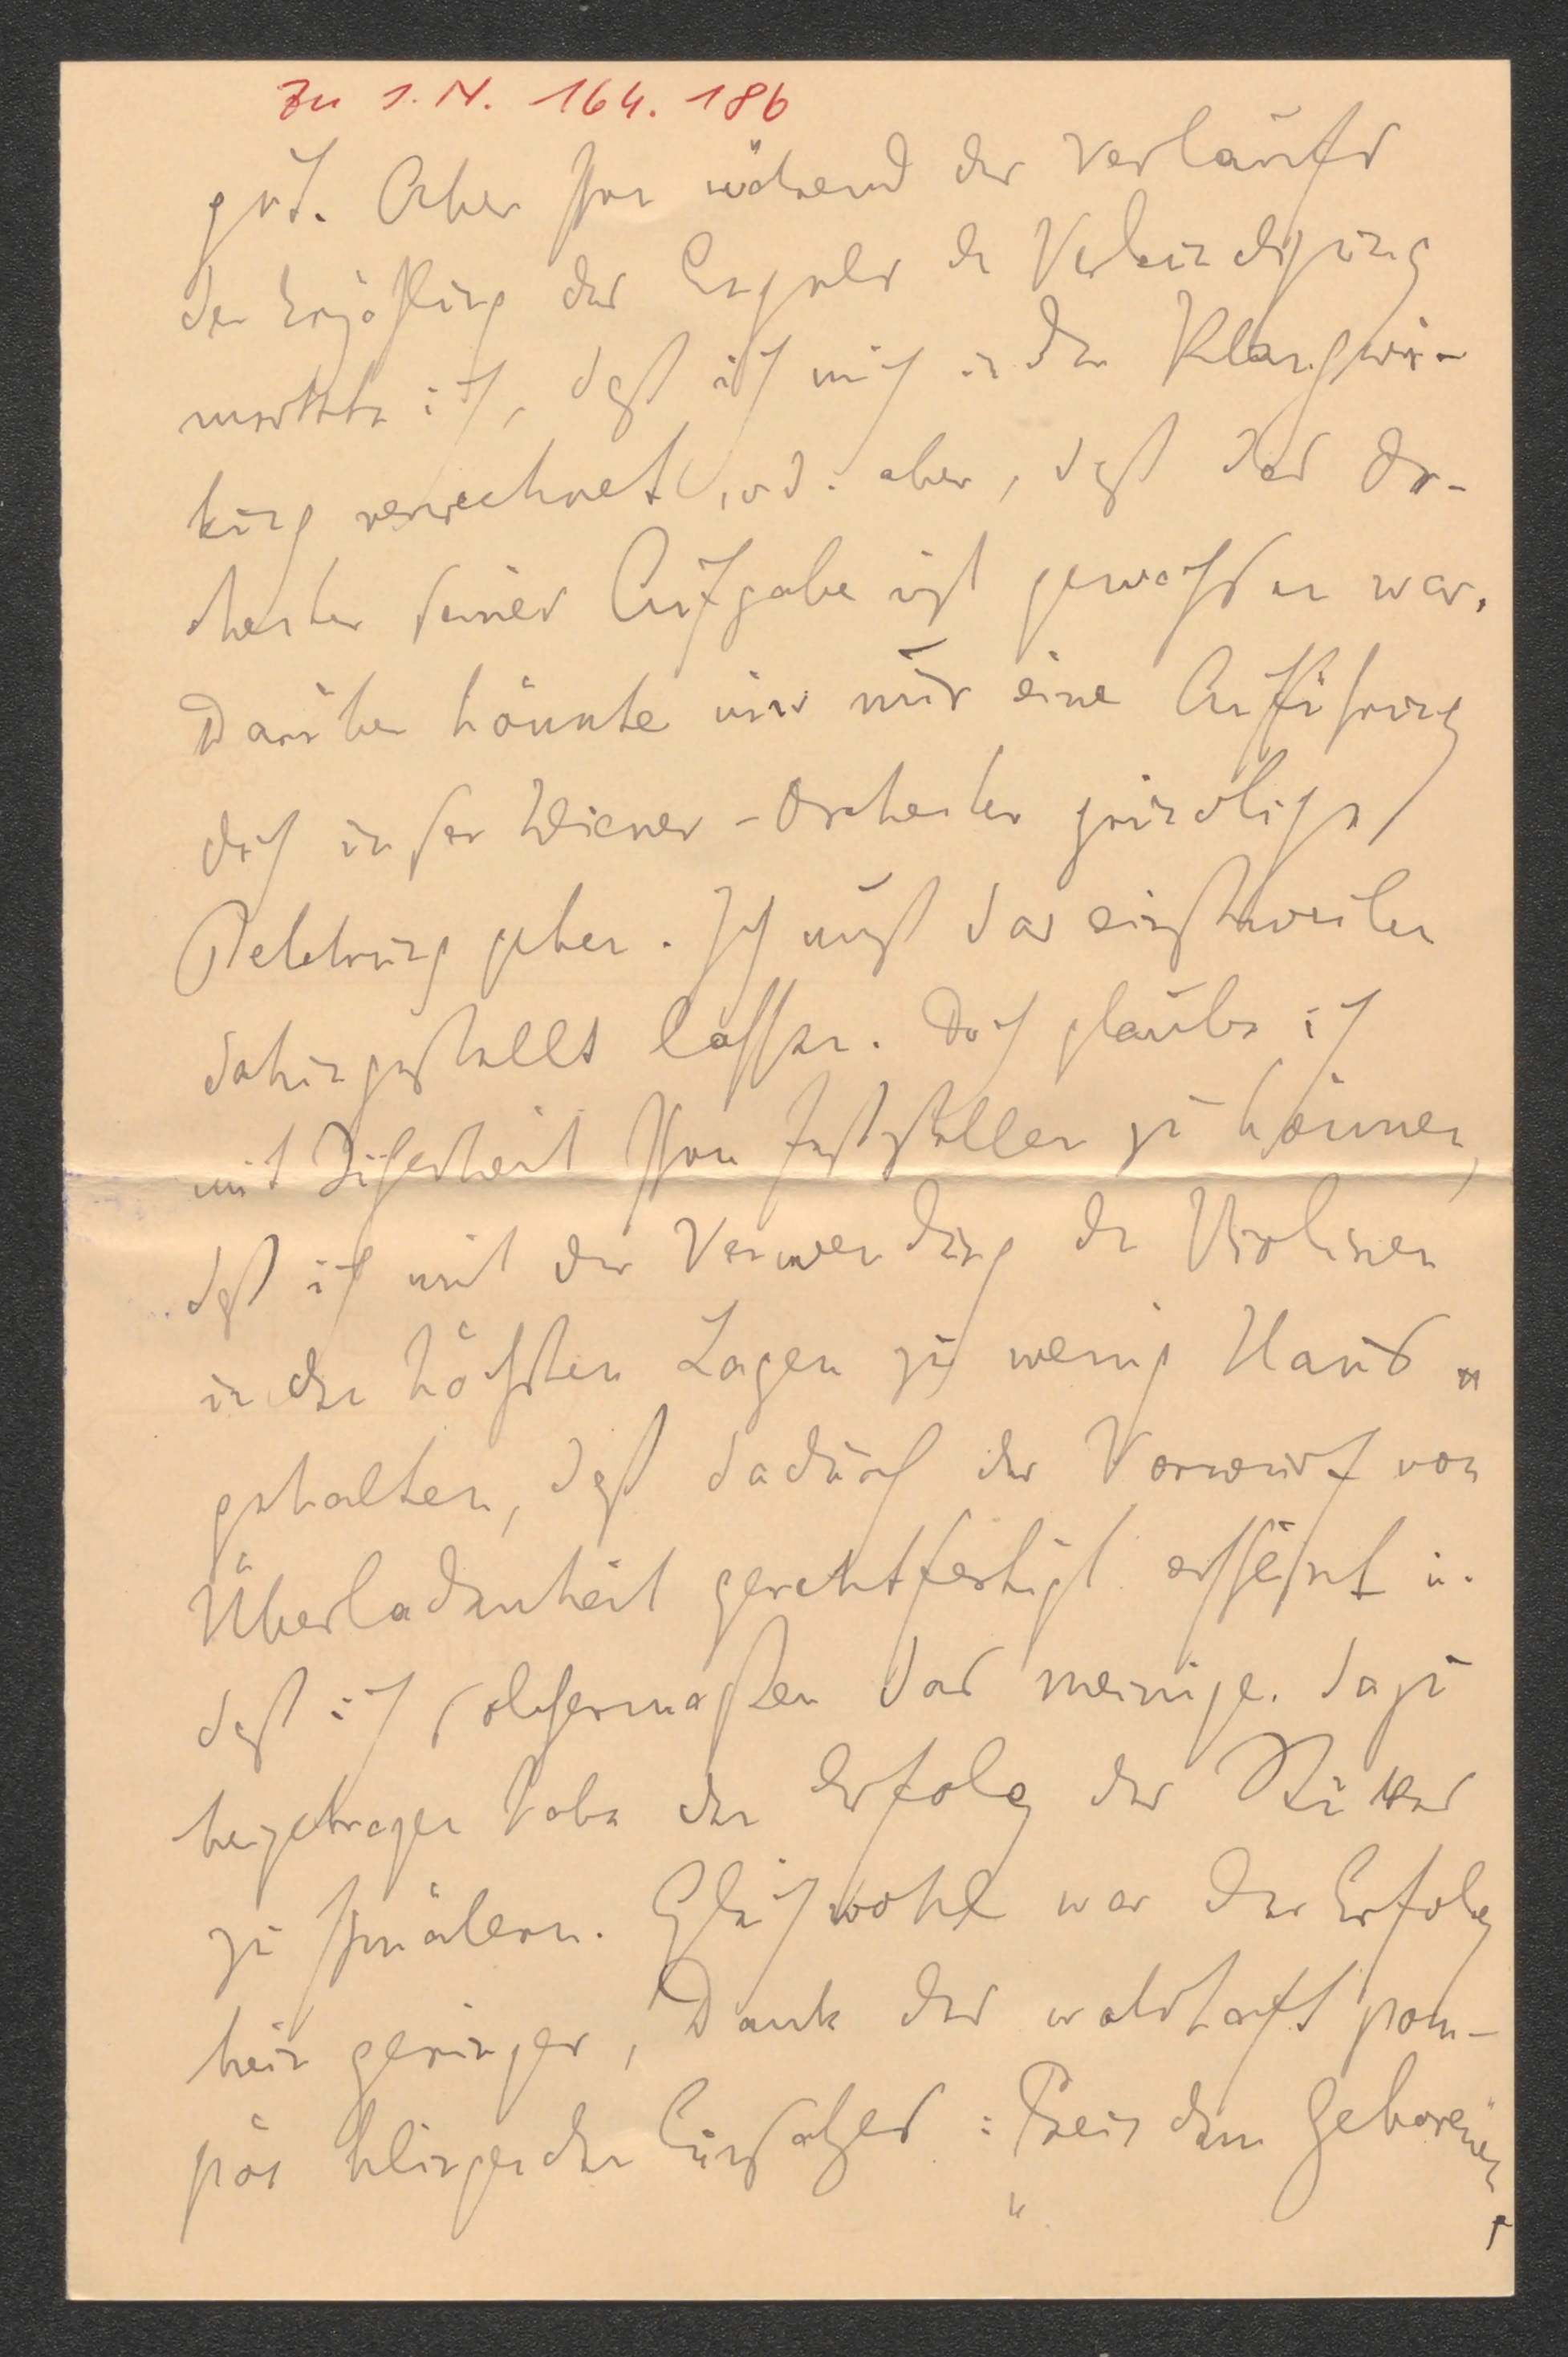 Zu I. N. 164.186
gut. Aber schon während des Verlaufs
der Erzählung des Engels der Verkündigung
merkte ich, daß ich mich in der Klangwir-
kung verrechnet, od. aber, daß das Or-
chester seiner Aufgabe nicht gewachsen war.
Darüber könnte uns nur eine Aufführung
durch unser Wiener-Orchester gründliche
Belehrung geben. Ich muß das einstweilen
dahingestellt lassen. Doch glaube ich
mit Sicherheit schon feststellen zu können,
daß ich mit der Verwendung der Violinen
in den höchsten Lagen zu wenig Haus
gehalten, daß dadurch der Vorwurf von
Überladenheit gerechtfertigt erscheint u.
daß ich solchermaßen das meinige dazu
beigetragen habe den Erfolg des Stückes
zu schmälern. Gleichwohl war der Erfolg
kein geringer, Dank des wahrhaft pom-
pös klingenden Einsatzes: „Preis dem Geborenen"